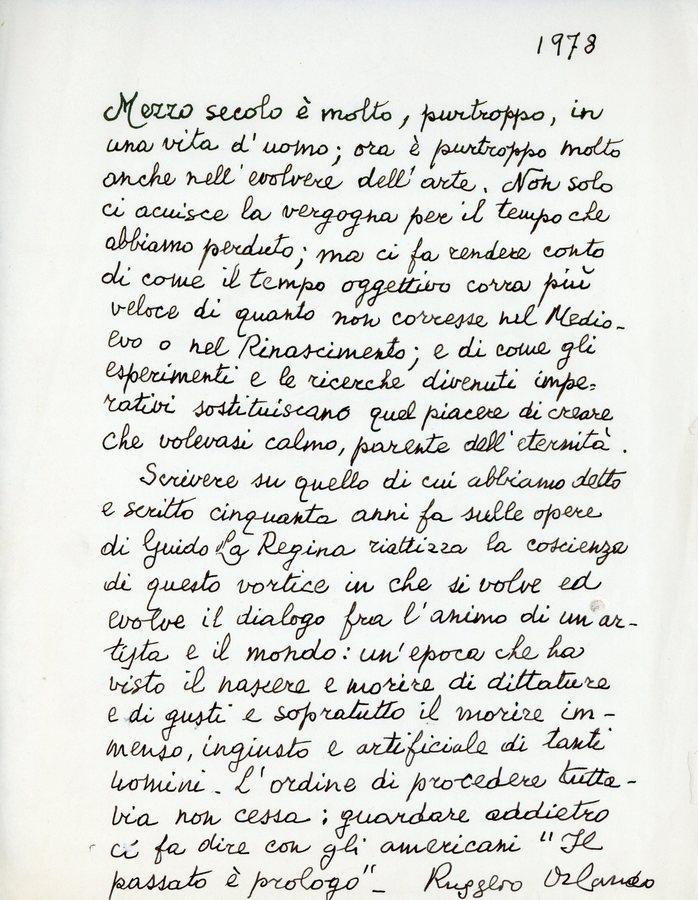 1978
Mezzo secolo è molto, purtroppo, in
una vita d'uomo; ora è purtroppo molto
anche nell'evolvere dell'arte. Non solo
ci acuisce la vergogna per il tempo che
abbiamo perduto; ma ci fa rendere conto
di come il tempo oggettivo corra più
veloce di quanto non corresse nel Medio-
evo o nel Rinascimento; e di come gli
esperimenti e le ricerche divenuti impe=
rativi sostituiscano quel piacere di creare
che volevasi calmo, parente dell'eternità.
Scrivere su quello di cui abbiamo detto
e scritto cinquanta anni fa sulle opere
di Guido La Regina riattizza la coscienza
di questo vortice in che si volve ed
evolve il dialogo fra l'animo di un ar-
tista e il mondo: un'epoca che ha
visto il nascere e morire di dittature
e di gusti e sopratutto il morire im-
menso, ingiusto e artificiale di tanti
uomini. L'ordine di procedere tutta-
via non cessa: guardare addietro
ci fa dire con gli americani "Il
passato è prologo"- Ruggero Orlando